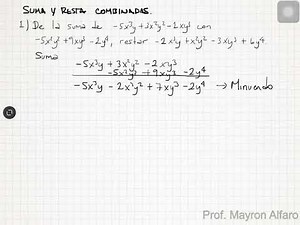 SUMA Y RESTA COMBINADAS.
1) De la suma de -5x³y + 3x²y² - 2xy³ con
-5x²y² + 9xy³ - 2y⁴, restar -2x³y + x²y² - 3xy³ + 6y⁴
Suma
-5x³y + 3x²y² - 2xy³
-5x²y² + 9xy³ - 2y⁴
-5x³y - 2x²y² + 7xy³ - 2y⁴ → Minuendo
Prof. Mayron Alfaro